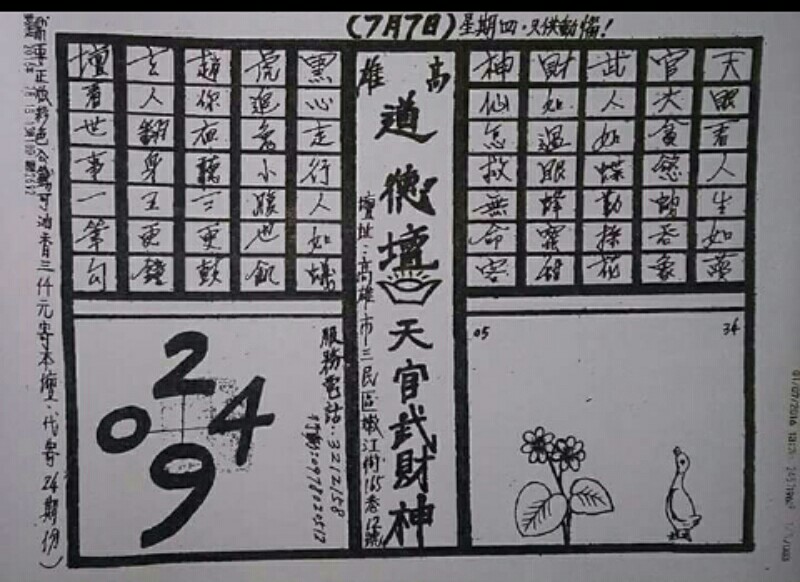 (7月7日)星期四.只供動惱!
天眼看人生如夢
官大貪慾蛇吞象
武人如蝶勤採花
財如過眼蜂甜
神仙怎救無命客
高雄
道德壇
天官武財神
壇址:高雄市三民區嫩江街165巷12號
黑心走行人如蟻
虎追小賺也飢
趙你聽三更鼓
玄人翻身五更鐘
壇看世事一筆勾
05
34
服務電話:3212158
行動:0978020512
2
0
4
9
正版彩色可油香三仟元寄本壇.代寄24期份)
01/07/2016